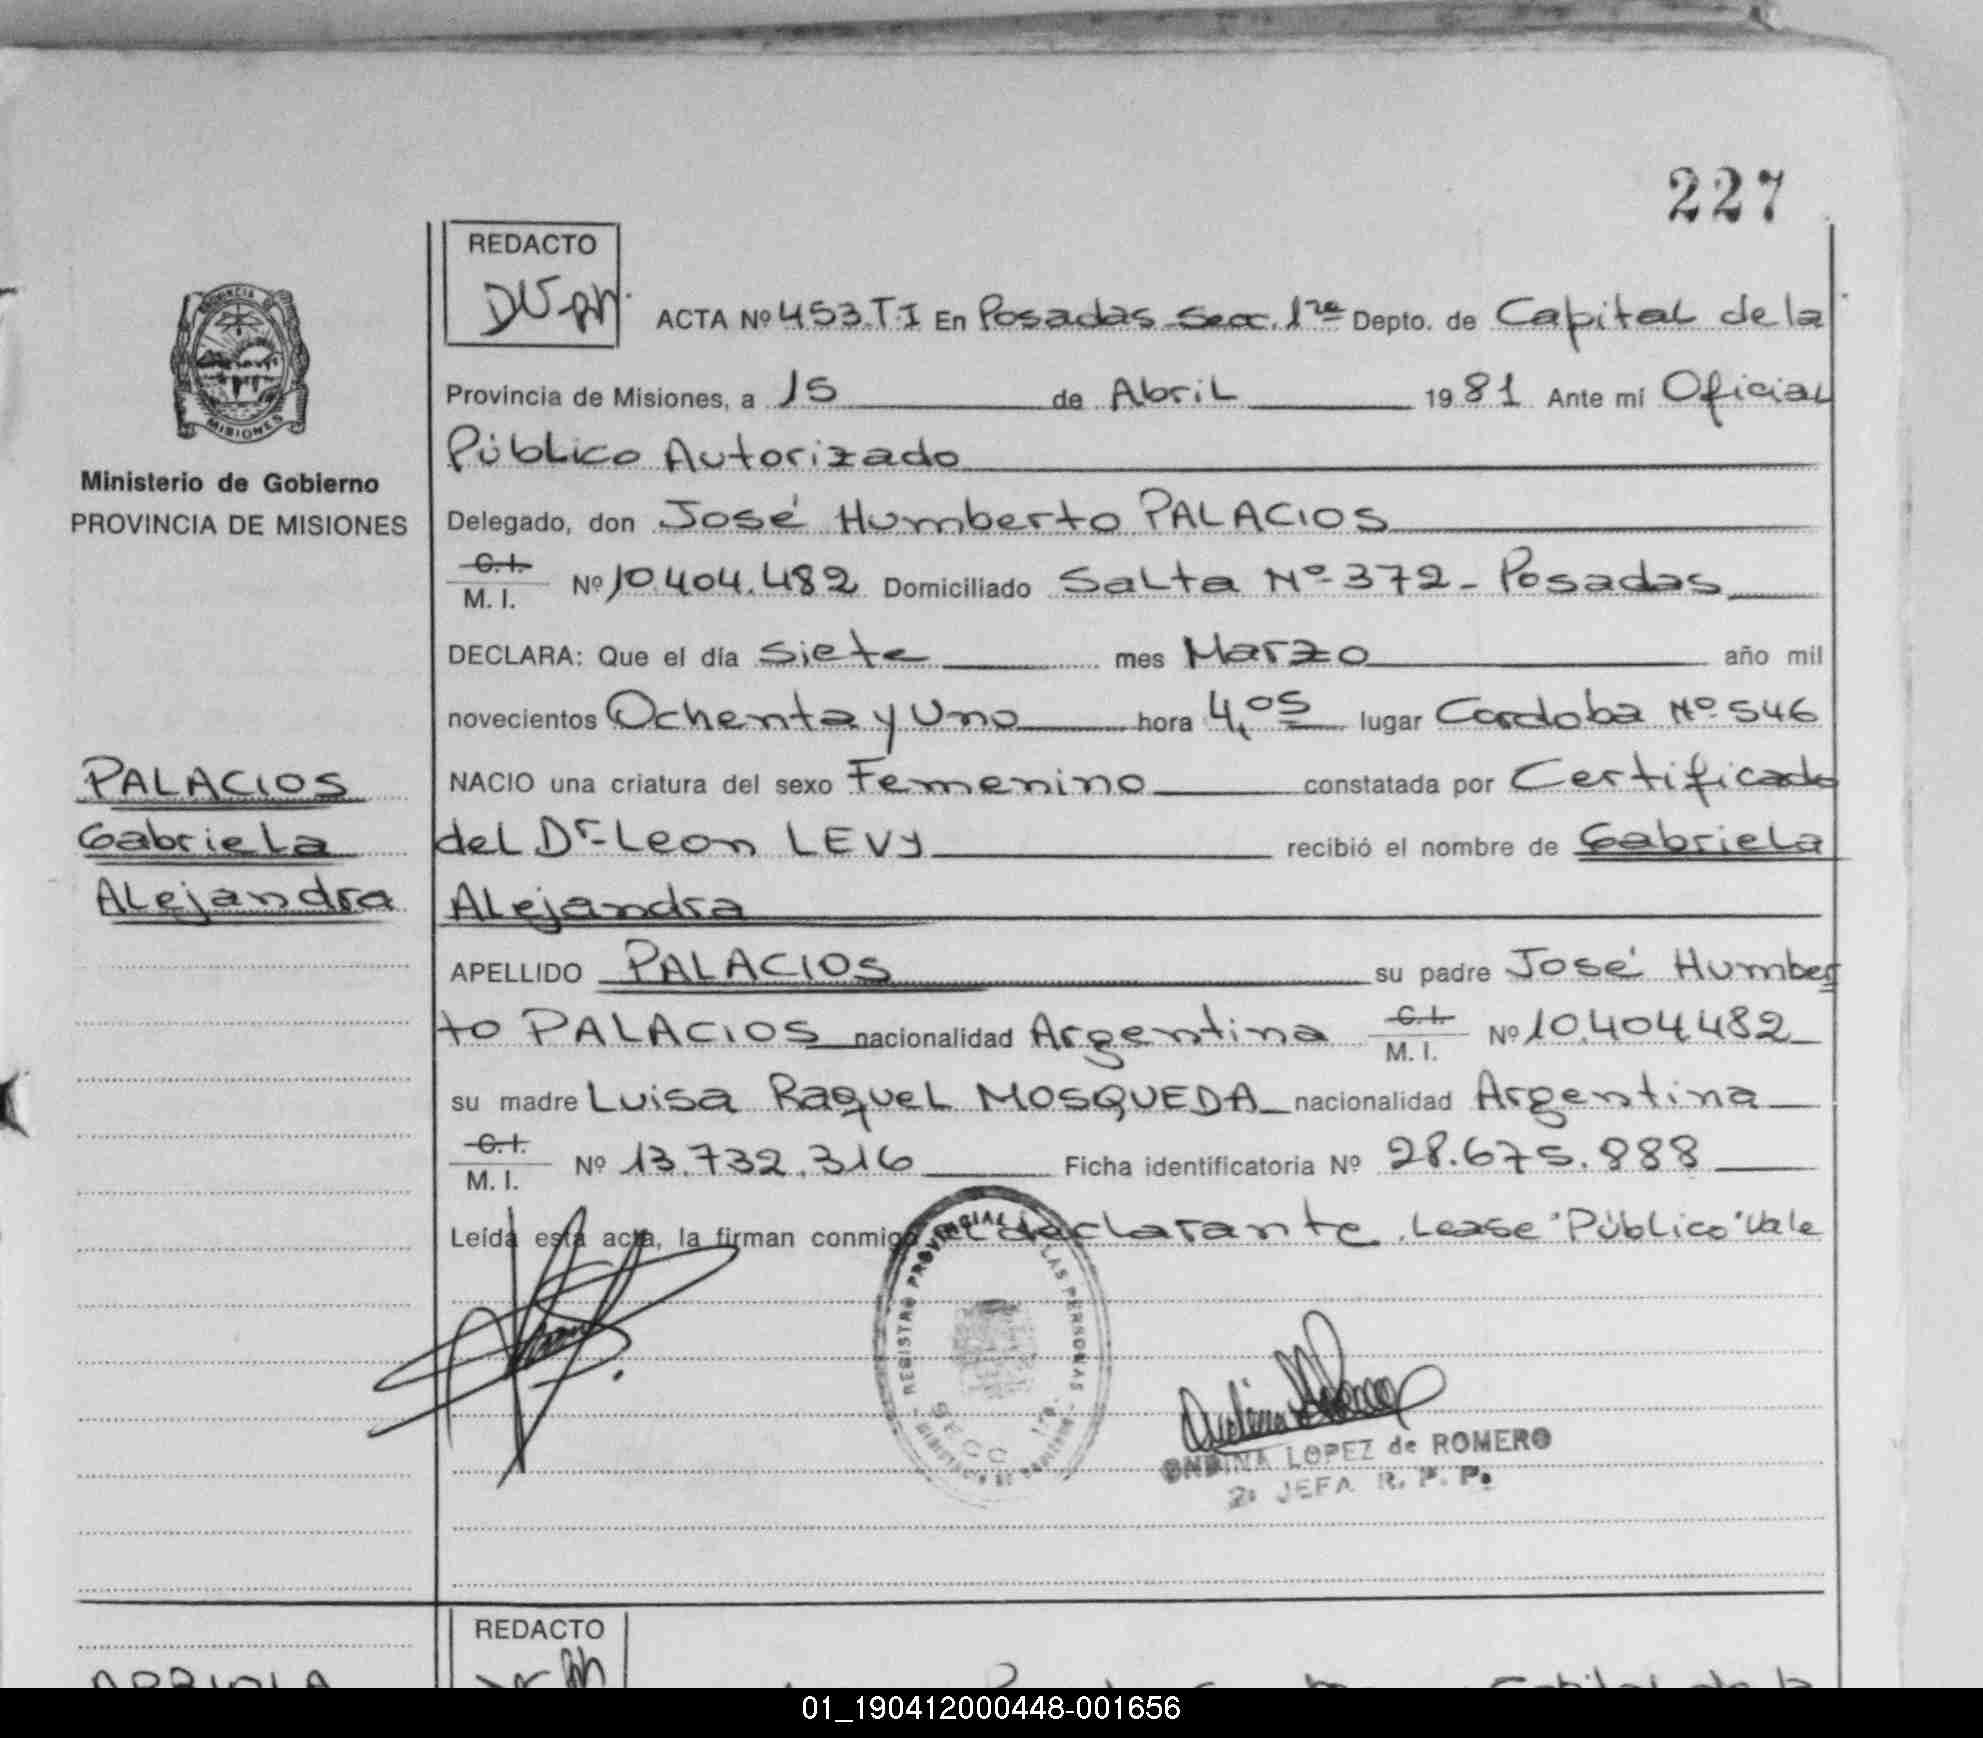 227
REDACTO
ACTA Nº 453.T.I En Posadas Secc. 1ra Depto. de Capital de la
Provincia de Misiones, a 15 de Abril 1981 Ante mí Oficial
Público Autorizado
Delegado, don José Humberto PALACIOS
C.I.
M. I. Nº 10.404.482 Domiciliado Salta Nº 372 - Posadas
DECLARA: Que el día siete mes Marzo año mil
novecientos Ochenta y Uno hora 4,05 lugar Cordoba Nº 546
NACIO una criatura del sexo Femenino constatada por Certificado
del Dr. Leon LEVY recibió el nombre de Gabriela
Alejandra
APELLIDO PALACIOS su padre José Humber
to PALACIOS nacionalidad Argentina C.I.
M. I. Nº 10.404.482
su madre Luisa Raquel MOSQUEDA nacionalidad Argentina
C.I.
M. I. Nº 13.732.316 Ficha identificatoria Nº 28.675.888
Leída esta acta, la firman conmigo el declarante. Lease "Público" Vale
PROVINCIA DE
MISIONES
Ministerio de Gobierno
PROVINCIA DE MISIONES
PALACIOS
Gabriela
Alejandra
REGISTRO PROVINCIAL DE LAS PERSONAS
SECC. 1ra.
MINISTERIO DE GOBIERNO
ONDINA LOPEZ de ROMERO
2ª JEFA R. P. P.
REDACTO
ARRIOLA
Capital de la
01_190412000448-001656